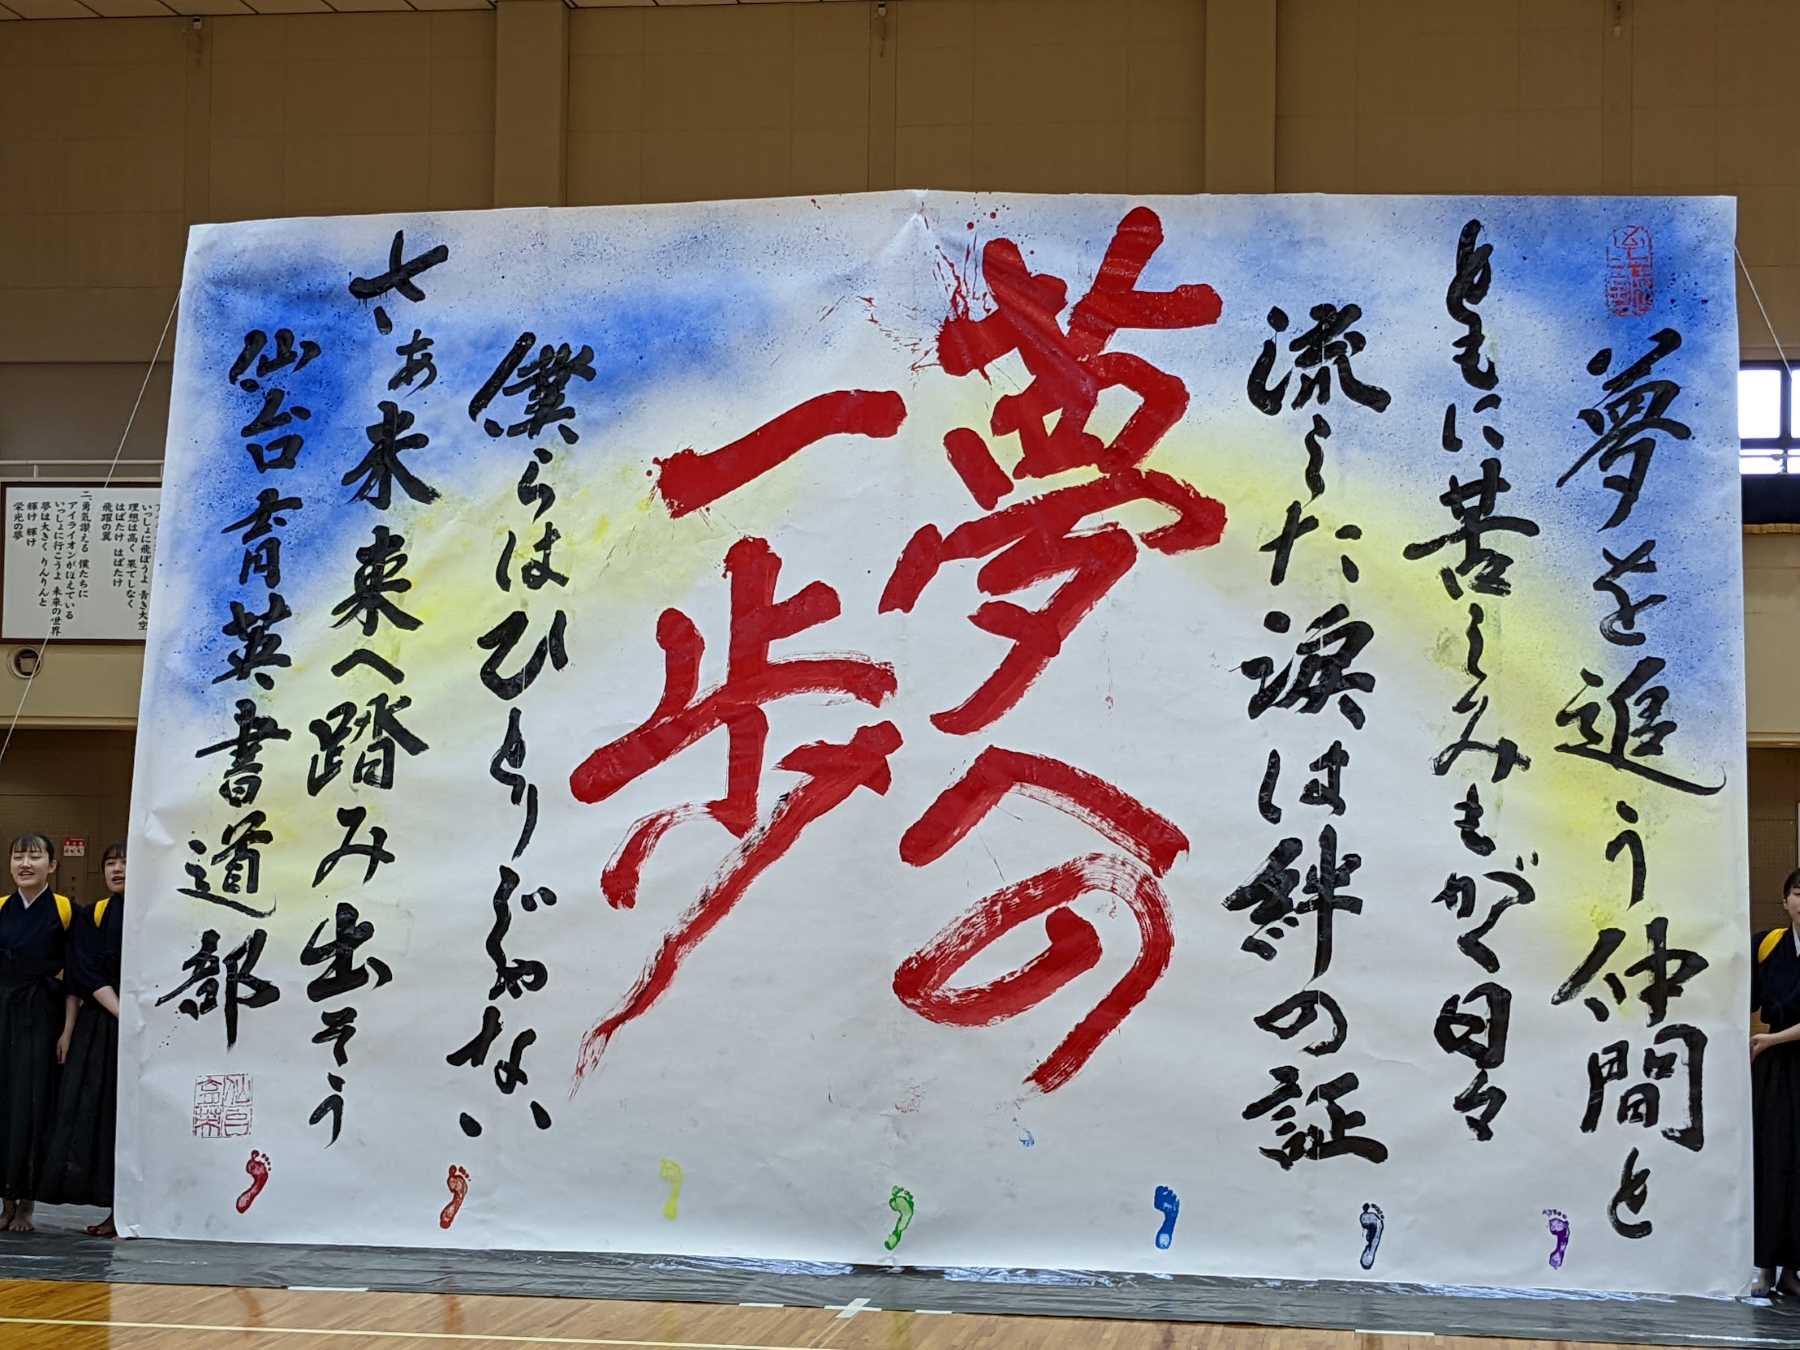 夢を追う仲間と
ともに苦しみもがく日々
流した涙は絆の証
夢への
一歩
僕らはひとりじゃない
さぁ未来へ踏み出そう
仙台育英書道部
いっしょに飛ぼうよ 青き大空
理想は高く 果てしなく
はばたけ はばたけ
飛躍の翼
二、勇気讃える 僕たちに
アイライオンがほえている
いっしょに行こうよ 未来の世界
夢は大きく りんりんと
輝け 輝け
栄光の夢